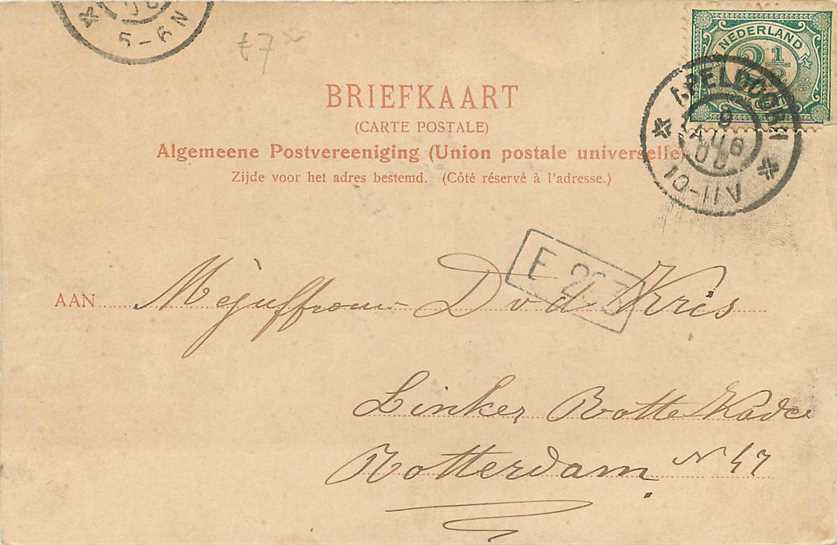 5-6N
£7
NEDERLAND
2½
BRIEFKAART
(CARTE POSTALE)
APELDOORN
9
AUG
00
10-11V
Algemeene Postvereeniging (Union postale universelle)
Zijde voor het adres bestemd. (Côté réservé à l'adresse.)
F 263
AAN Mejuffrouw D v d Kris
Linker Rotte Kade
Rotterdam No 47